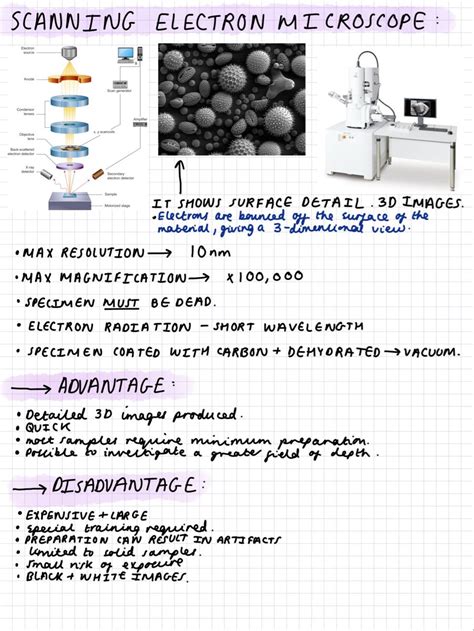 SCANNING ELECTRON MICROSCOPE:
Electron source
Anode
Condenser lenses
Scan generator
Objective lens
Amplifier
Back-scattered electron detector
X-ray detector
Secondary electron detector
Sample
Motorized stage
IT SHOWS SURFACE DETAIL. 3D IMAGES.
• Electrons are bounced off the surface of the
material, giving a 3-dimentional view.
• MAX RESOLUTION → 10nm
• MAX MAGNIFICATION → x100,000
• SPECIMEN MUST BE DEAD.
• ELECTRON RADIATION - SHORT WAVELENGTH
• SPECIMEN COATED WITH CARBON + DEHYDRATED → VACUUM.
→ ADVANTAGE:
• Detailed 3D images produced.
• QUICK
• most samples require minimum preparation.
• Possible to investigate a greater field of depth.
→ DISADVANTAGE:
• EXPENSIVE + LARGE
• special training required.
• PREPARATION CAN RESULT IN ARTIFACTS
• limited to solid samples.
• small risk of exposure
• BLACK + WHITE IMAGES.